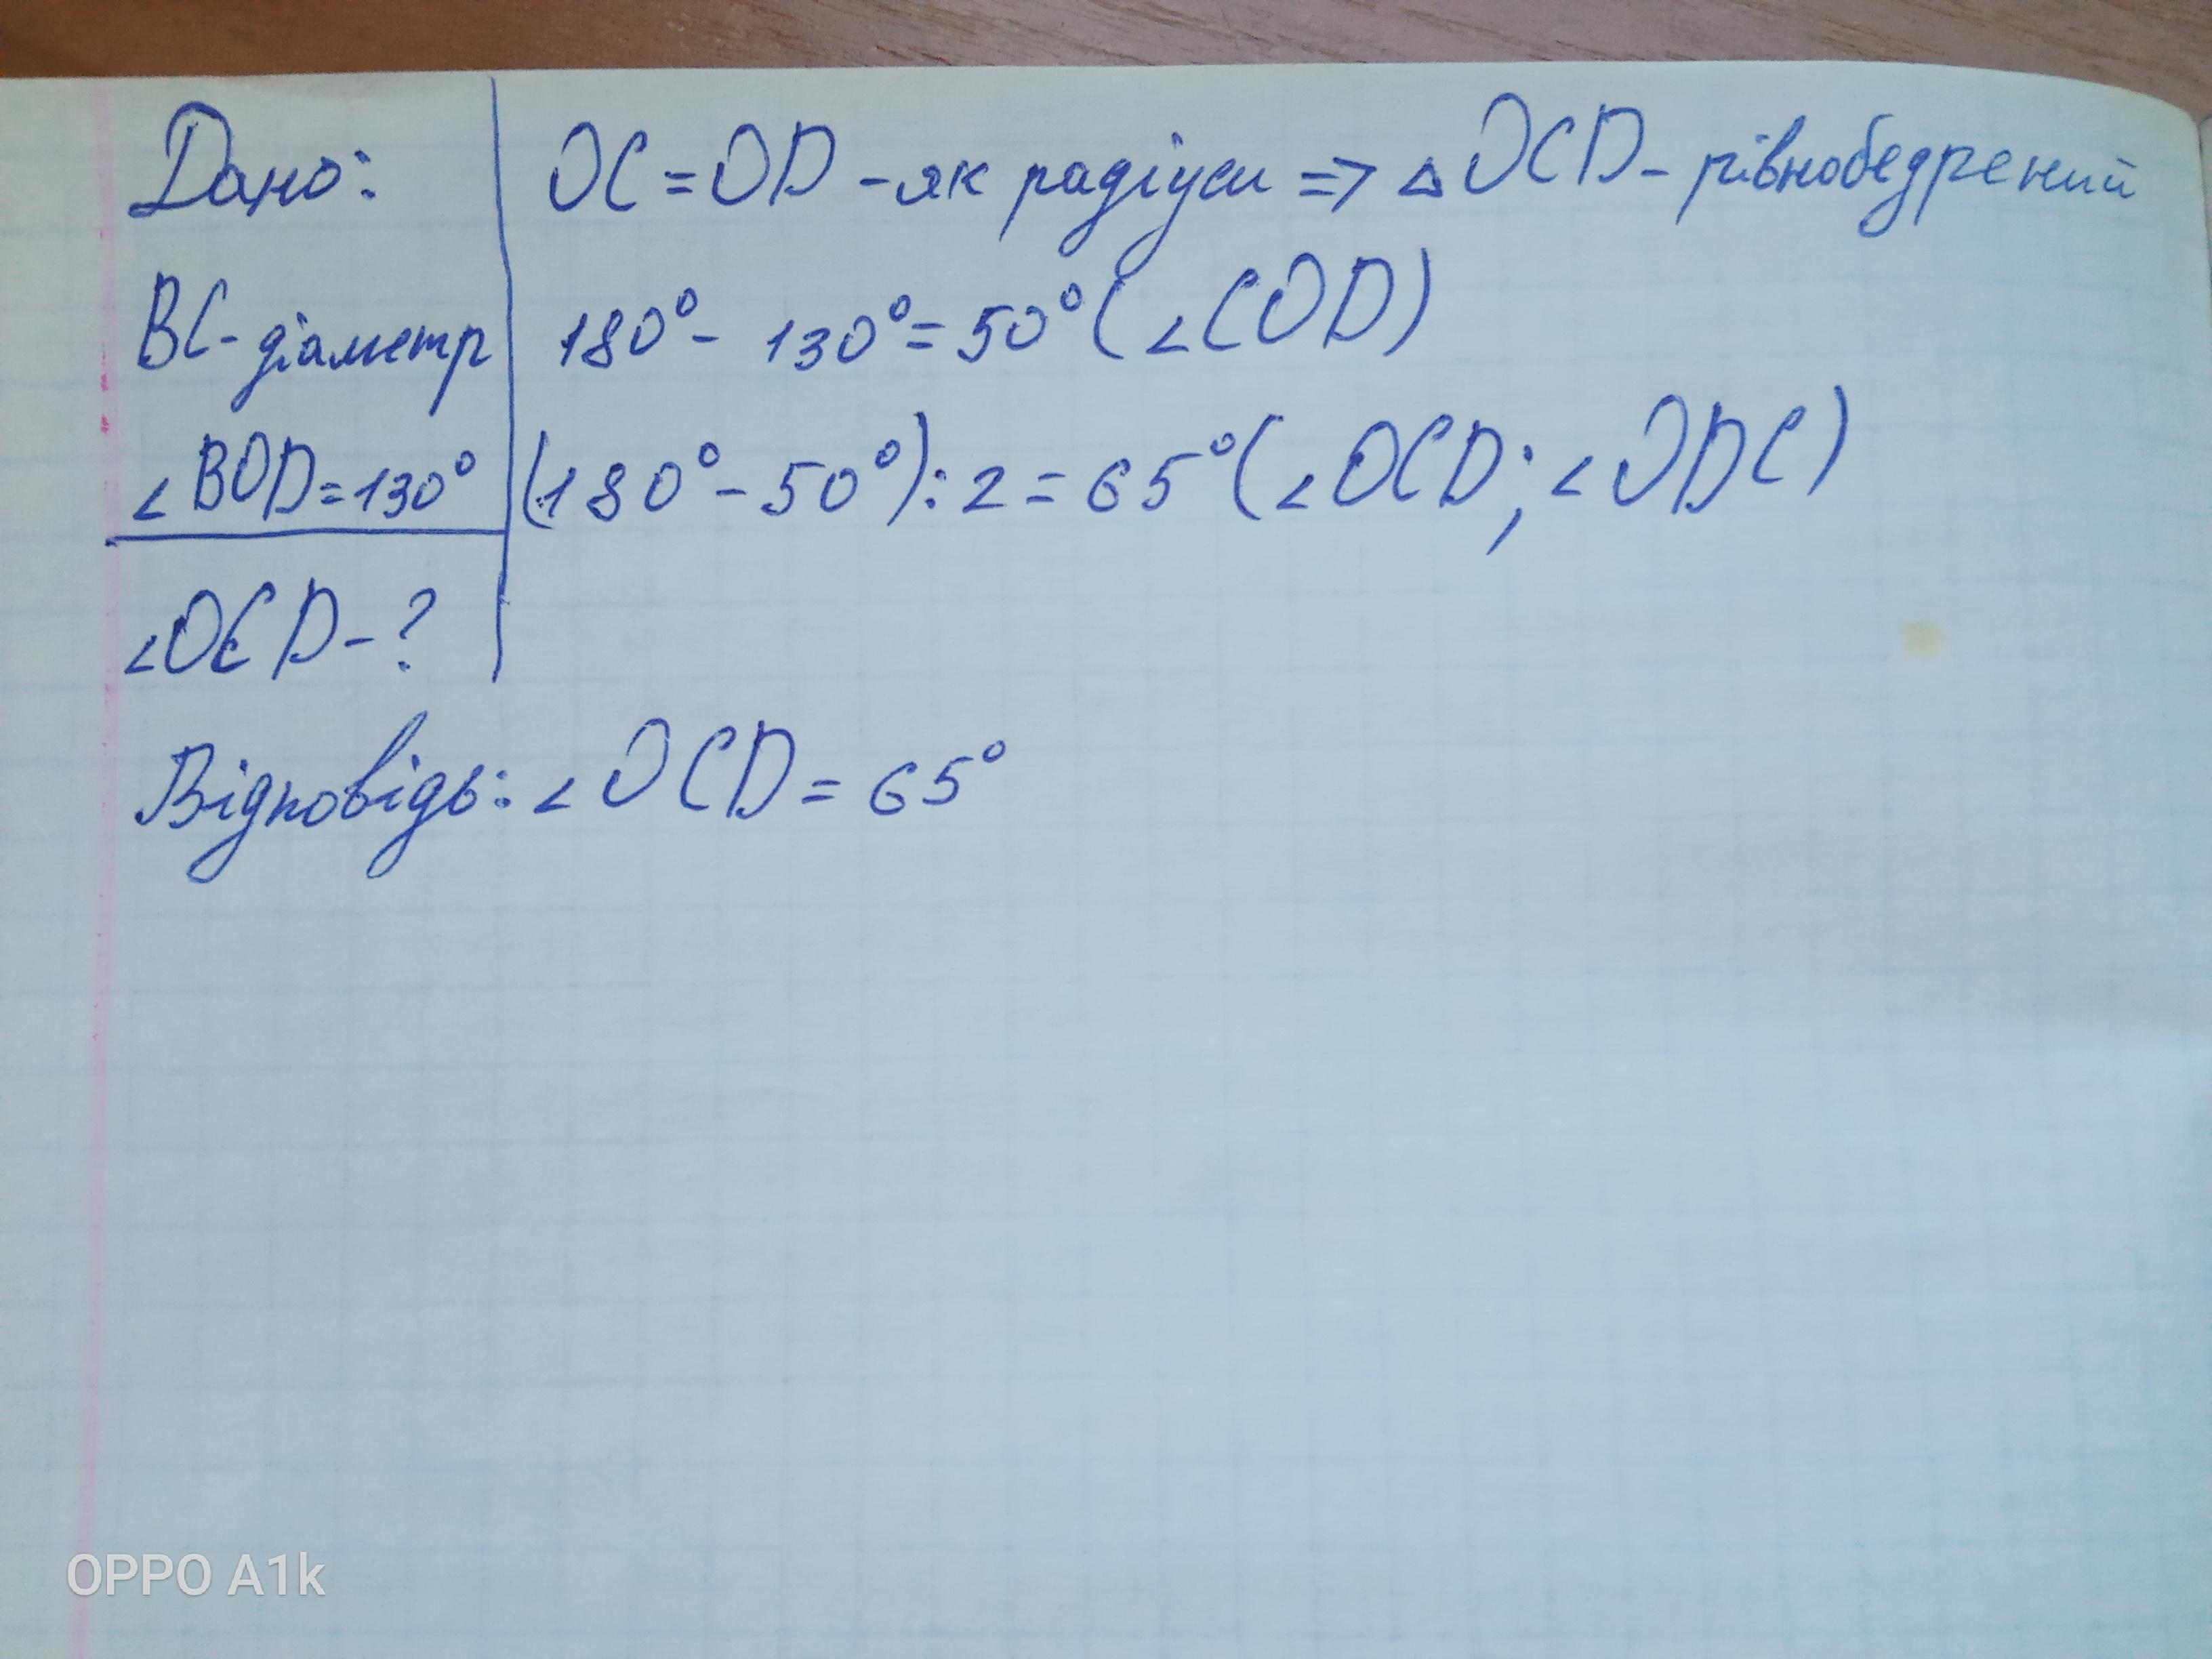 Дано:
BC-діаметр
∠BOD=130°
∠OCD-?
OC=OD-як радіуси => △OCD-рівнобедрений
180°-130°=50°(∠COD)
(180°-50°):2=65°(∠OCD;∠ODC)
Відповідь: ∠OCD=65°
OPPO A1k